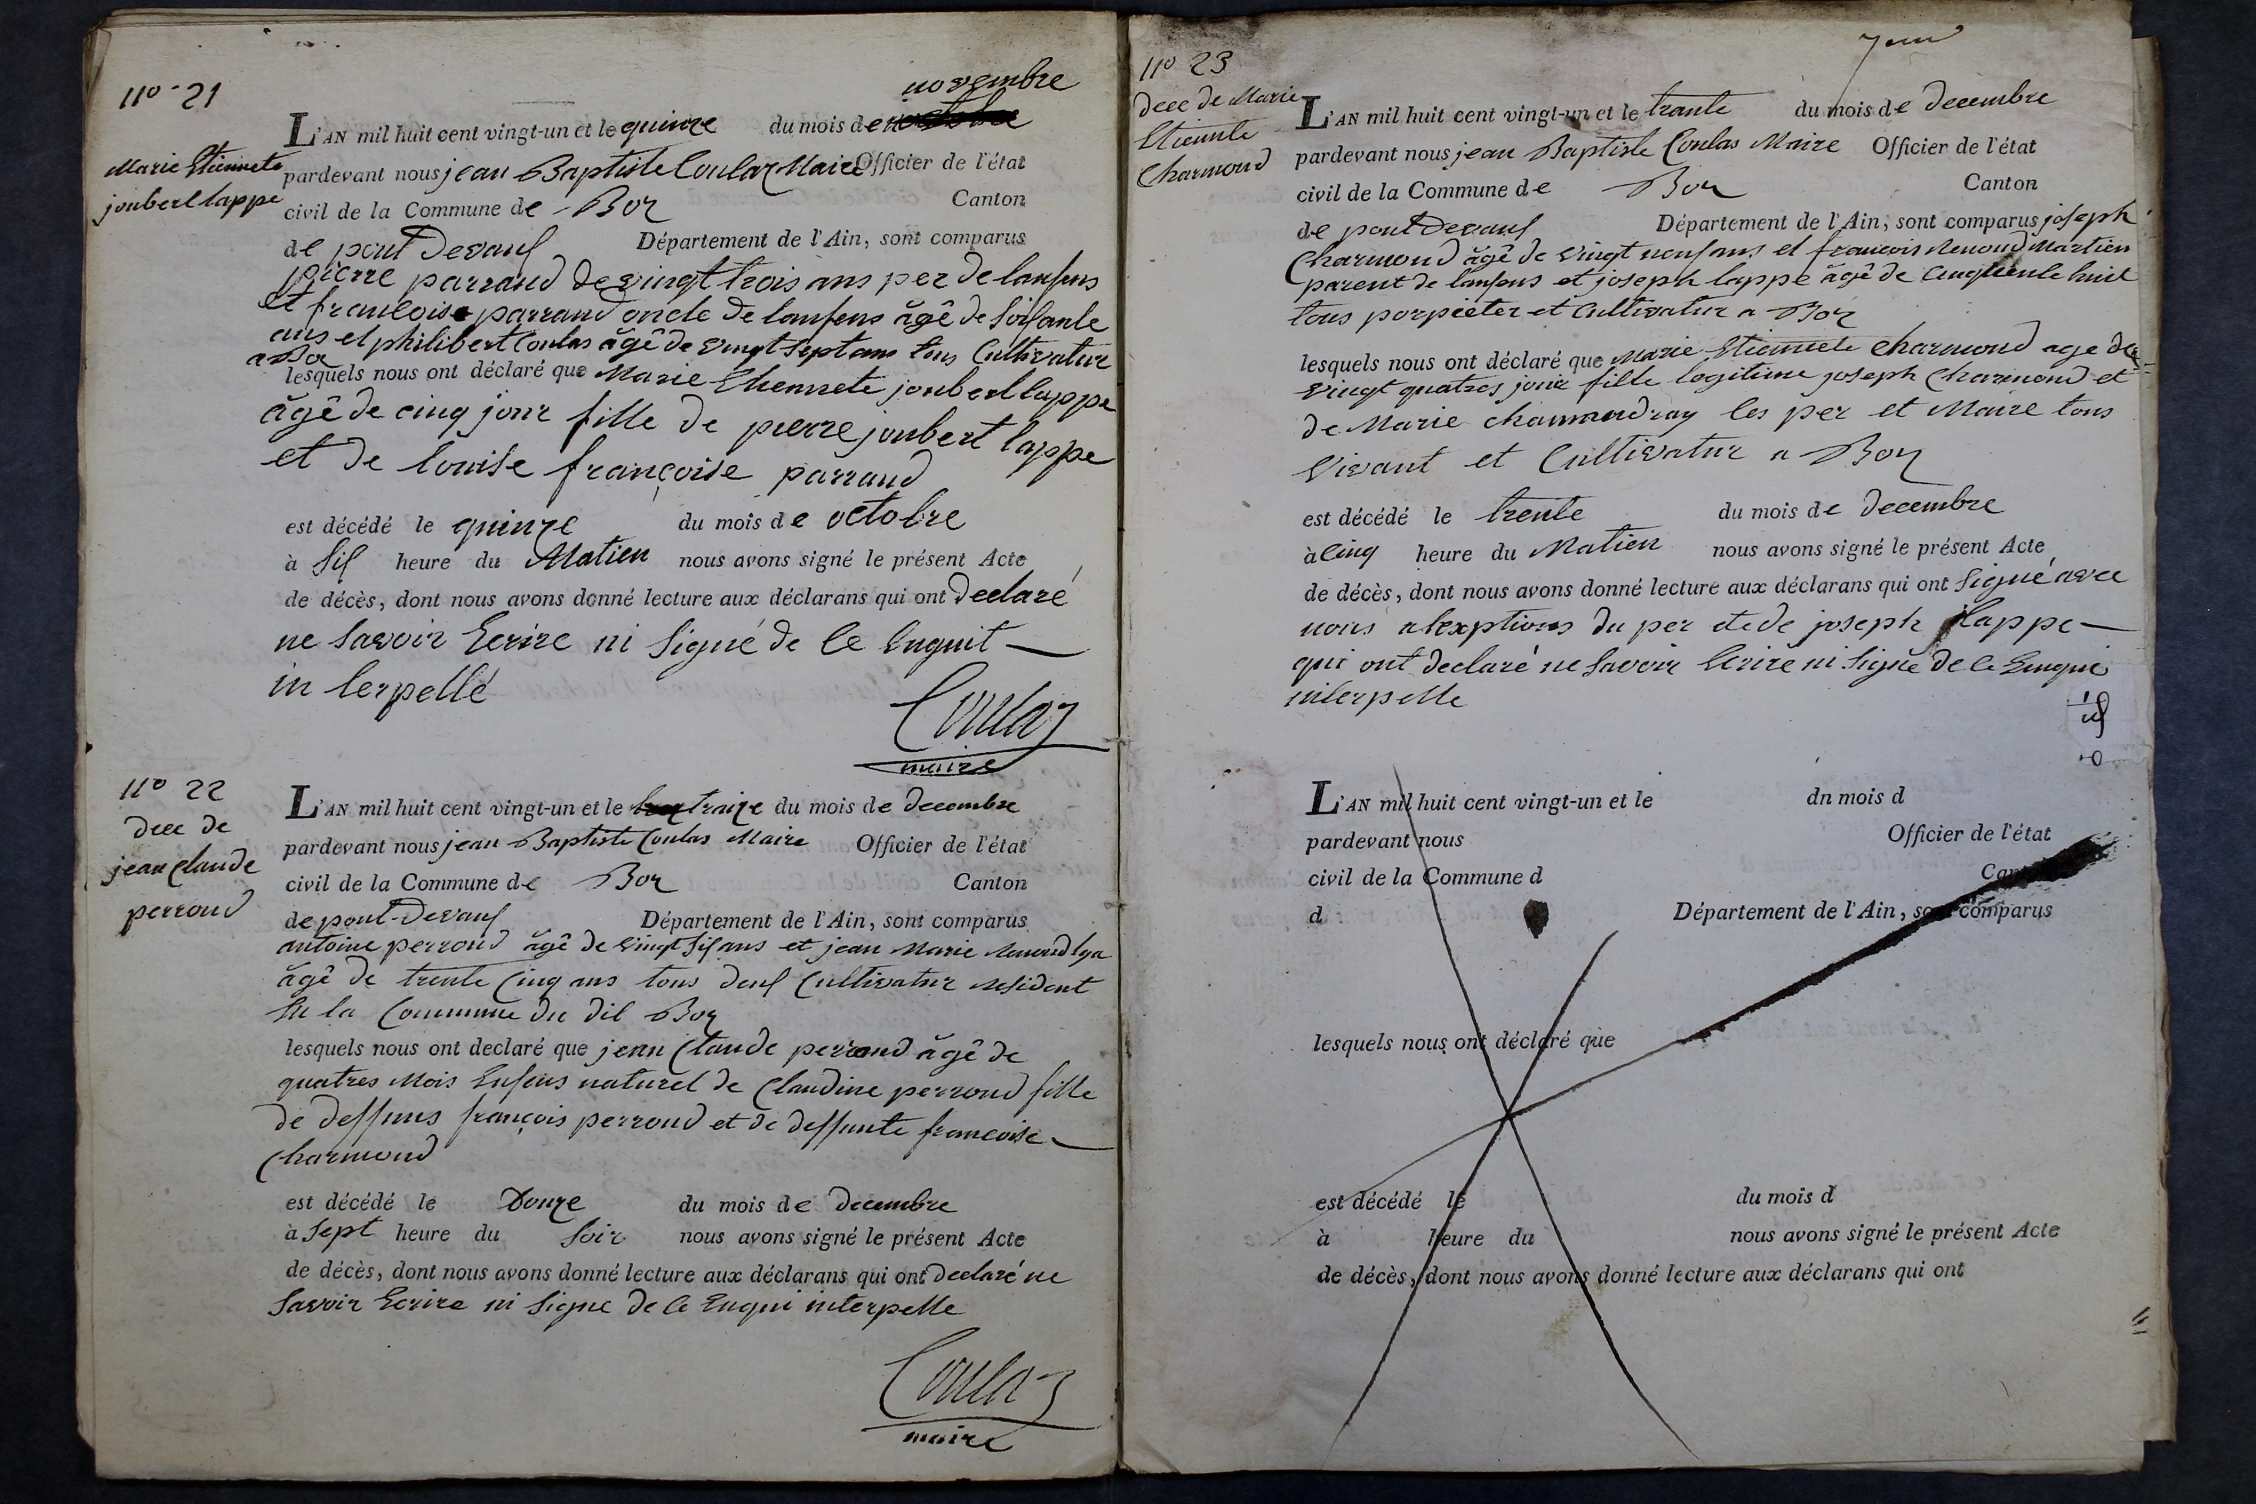 n° 21
Marie Etiennete
joubert lappe
novembre
L'AN mil huit cent vingt-un et le quinze du mois de octobre
pardevant nous jean Baptiste Coulaz Maire Officier de l'état
civil de la Commune de Boz Canton
de pont Devaus Département de l'Ain, sont comparus
pierre parraud de vingt trois ans per de lanfens
et francoise parraud oncle de lanfens âgê de soisante
ans et philibert Coulas âgê de vingt sept ans tous Cultivatur
a Boz
lesquels nous ont déclaré que Marie Etiennete joubert lappe
âgê de cinq jour fille de pierre joubert lappe
et de louise françoise parraud
est décédé le quinze du mois de octobre
à sis heure du Matien nous avons signé le présent Acte
de décès, dont nous avons donné lecture aux déclarans qui ont declaré
ne savoir Ecrire ni signé de ce Enquit
in terpellé
Coulaz
maire
n° 22
dece de
jean Claude
perroud
L'AN mil huit cent vingt-un et le traize du mois de decembre
pardevant nous jean Baptiste Coulas Maire Officier de l'état
civil de la Commune de Boz Canton
de pont-Devaus Département de l'Ain, sont comparus
antoine perroud âgê de vingt sis ans et jean Marie Renoud
âgê de trente Cinq ans tous deus Cultivatur Resident
su la Commune du dit Boz
lesquels nous ont declaré que jean Claude perroud âgê de
quatres Mois Enfens naturel de Claudine perroud fille
de deffuns françois perroud et de deffunte francoise
Charmond
est décédé le Douze du mois de decembre
à sept heure du soir nous avons signé le présent Acte
de décès, dont nous avons donné lecture aux déclarans qui ont declaré ne
savoir Ecrire ni signe de ce Enqui interpelle
Coulaz
maire
n° 23
dece de Marie
Etiennte
Charmond
L'AN mil huit cent vingt-un et le trante du mois de decembre
pardevant nous jean Baptiste Coulas Maire Officier de l'état
civil de la Commune de Boz Canton
de pont Devaus Département de l'Ain, sont comparus joseph
Charmond âgê de vingt neuf ans et francois Renoud Martien
parent de lanfens et joseph lappe âgê de Cinquente huit
tous porpieter et Cultivatur a Boz
lesquels nous ont déclaré que Marie Etiennete Charmond age de
vingt quatres jour fille legitime joseph Charmond et
de Marie chamandray les per et Maire tous
vivant et Cultivatur a Boz
est décédé le trente du mois de decembre
à Cinq heure du Matien nous avons signé le présent Acte
de décès, dont nous avons donné lecture aux déclarans qui ont signé avec
nous a lexptions du per et de joseph lappe
qui ont declaré ne savoir Ecrire ni signê de ce Enqui
interpelle
L'AN mil huit cent vingt-un et le dn mois d
pardevant nous Officier de l'état
civil de la Commune d Canton
d Département de l'Ain, sont comparus
lesquels nous ont déclaré que
est décédé le du mois d
à heure du nous avons signé le présent Acte
de décès, dont nous avons donné lecture aux déclarans qui ont